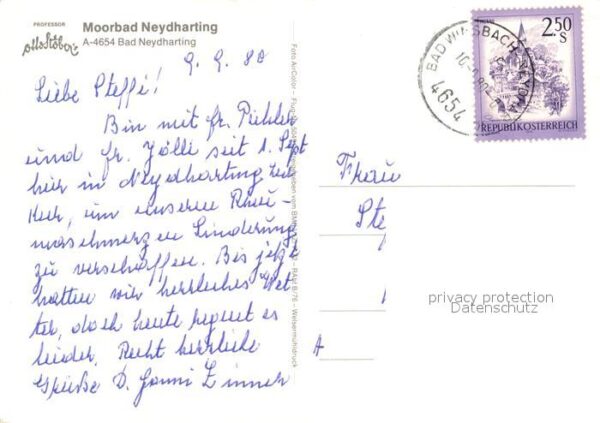 PROFESSOR
Otto Stöber's
Moorbad Neydharting
A-4654 Bad Neydharting
9. 9. 80
Liebe Steffi!
Bin mit Fr. Pichler
und Fr. Jölli seit 1. Sept
hier in Neydharting zur
Kur, um unseren Rheu-
maschmerzen Linderung
zu verschaffen. Bis jetzt
hatten wir herrliches Wet-
ter, doch heute regnet es
leider. Recht herzliche
Grüße D. Hanni Zinner
Foto AirColor
BAD WIMSBACH-NEYDH
4654
2.50
S
REPUBLIK ÖSTERREICH
Frau
Ste
A
privacy protection
Datenschutz